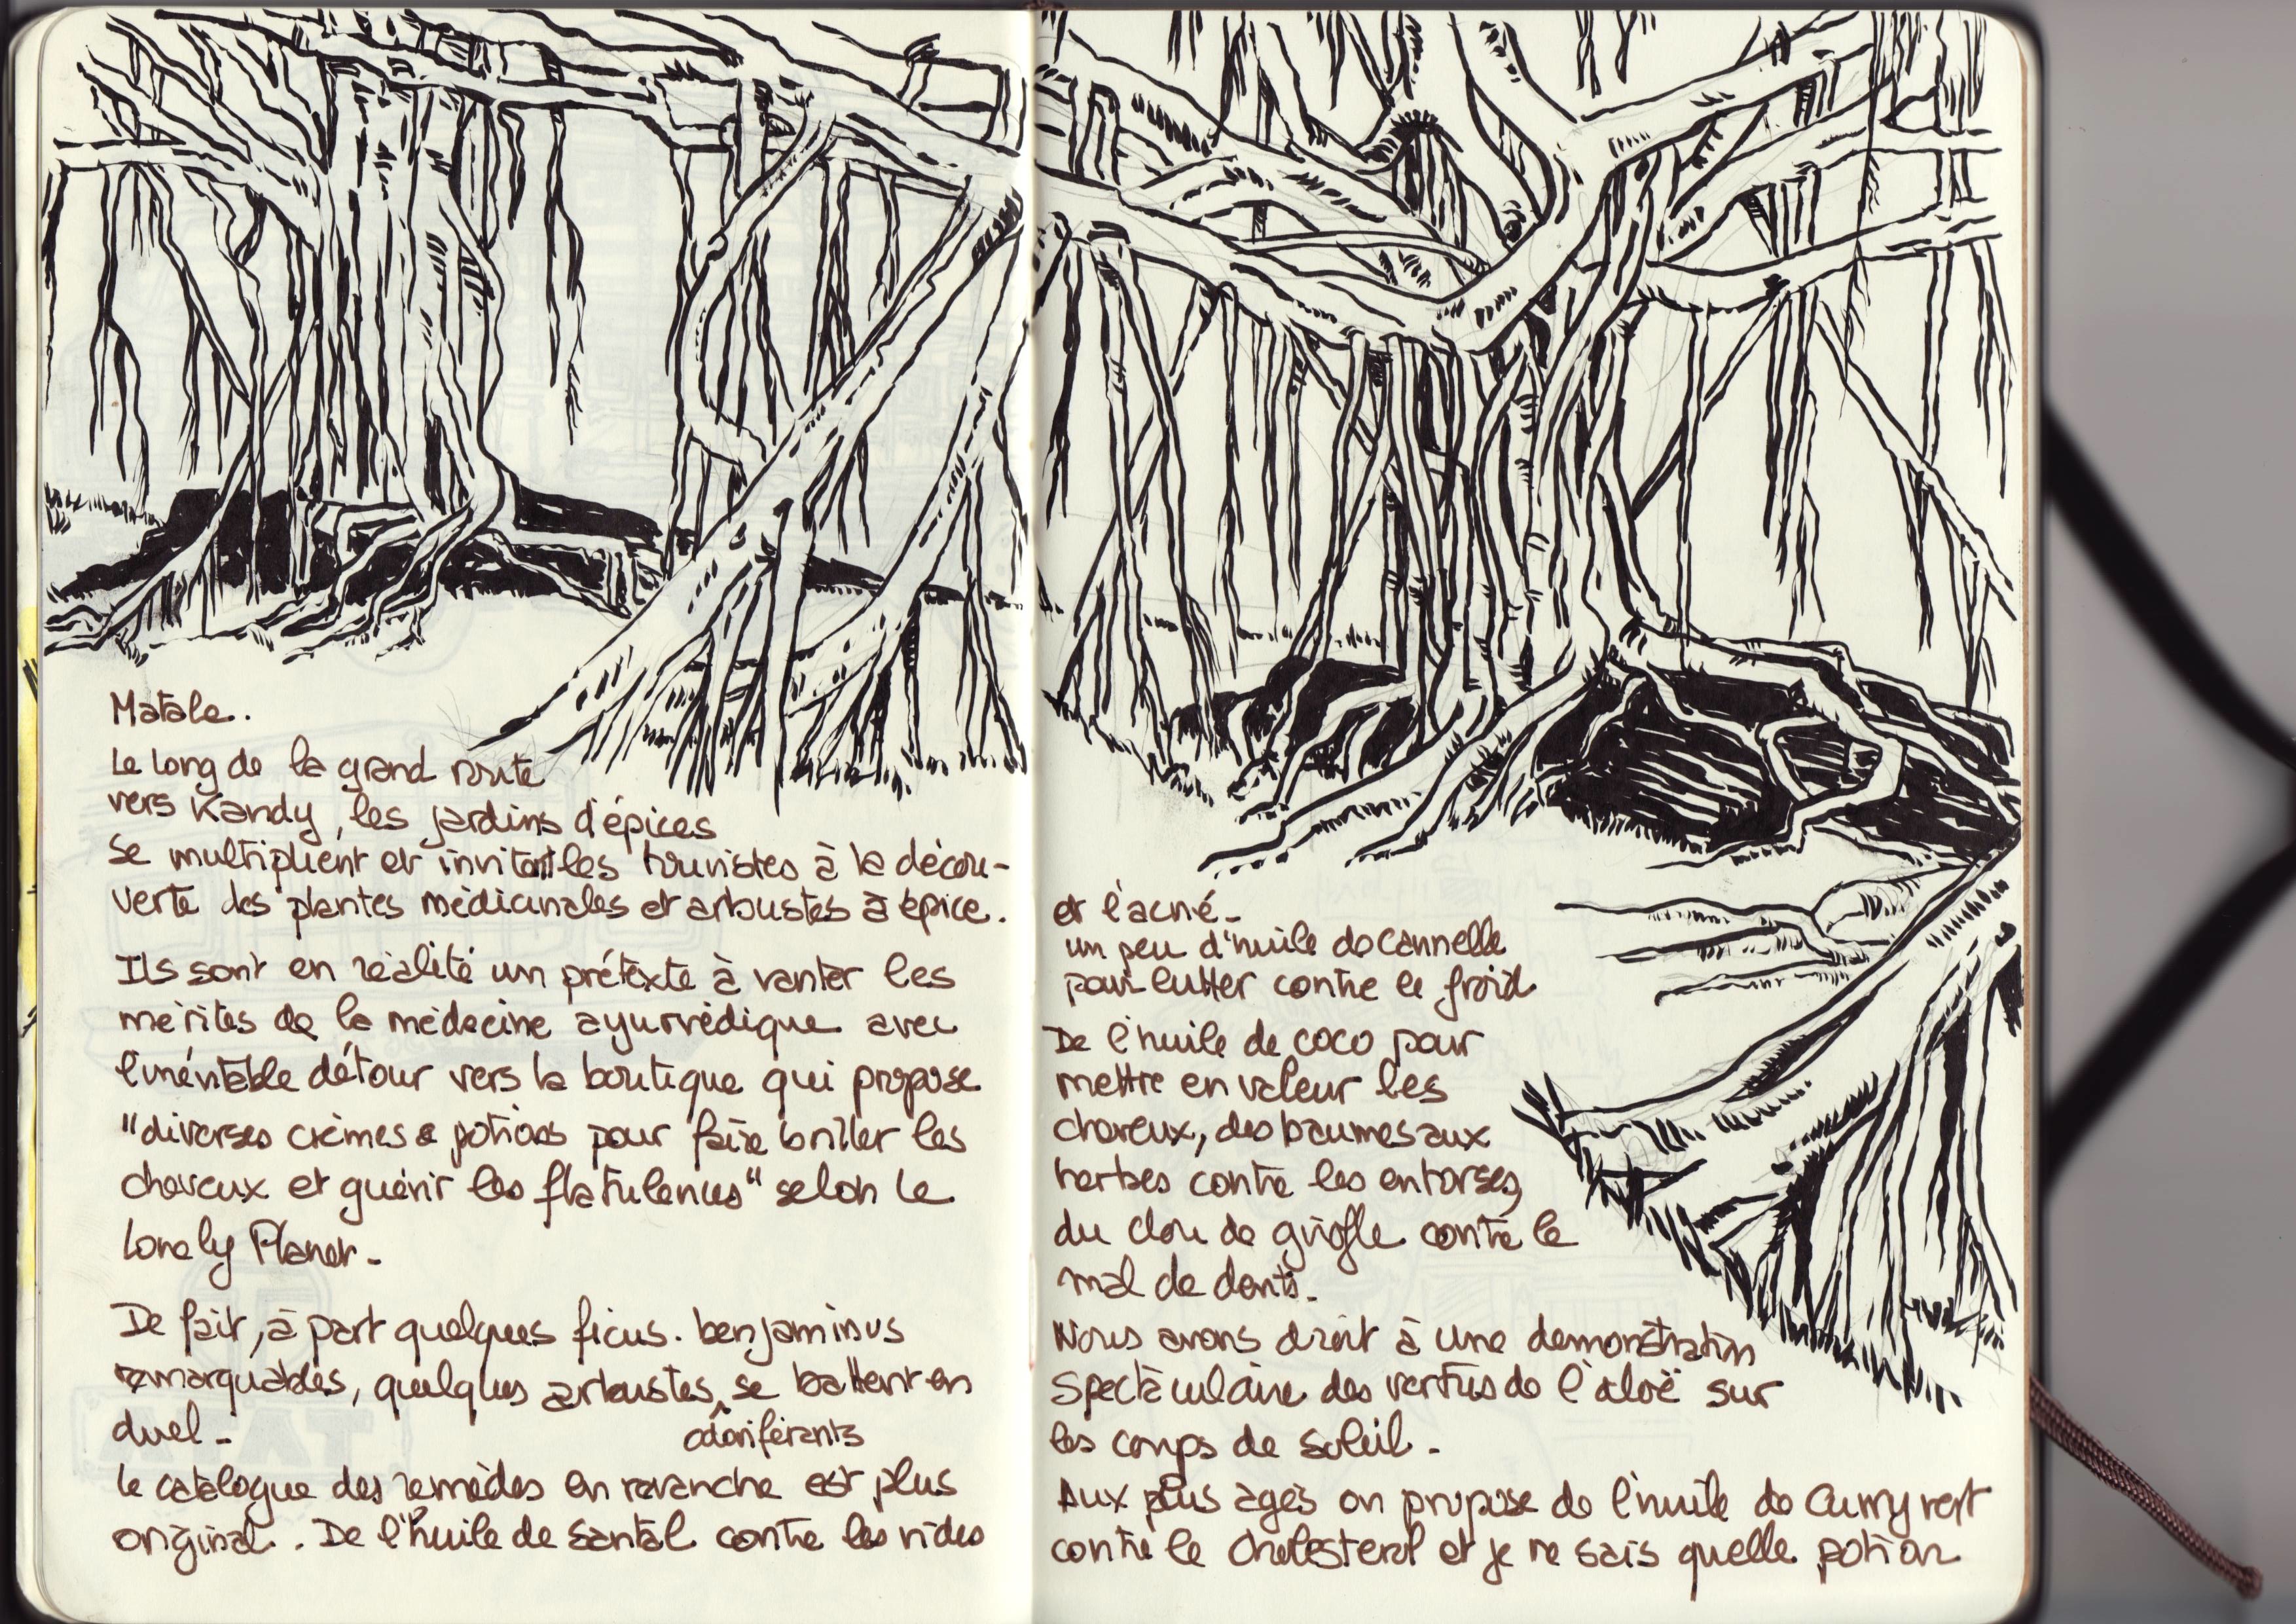 Matale.
Le long de la grand route
vers Kandy, les jardins d'épices
se multiplient et invitent les touristes à la décou-
verte des plantes médicinales et arbustes à épice.
Ils sont en réalité un prétexte à vanter les
mérites de la médecine ayurvédique avec
l'inévitable détour vers la boutique qui propose
"diverses crèmes & potions pour faire briller les
cheveux et guérir les flatulences" selon le
Lonely Planet.
De fait, à part quelques ficus. benjaminus
remarquables, quelques arbustes se battent en
duel.
odoriférants
Le catalogue des remèdes en revanche est plus
original. De l'huile de santal contre les rides
et l'acné.
un peu d'huile de cannelle
pour lutter contre le froid
De l'huile de coco pour
mettre en valeur les
cheveux, des baumes aux
herbes contre les entorses,
du clou de girofle contre le
mal de dents.
Nous avons droit à une demonstration
spectaculaire des vertus de l'aloë sur
les coups de soleil.
Aux plus agés on propose de l'huile de curry vert
contre le cholesterol et je ne sais quelle potion